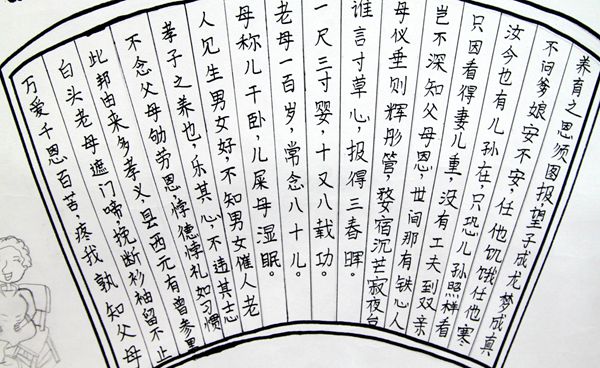 养育之恩须图报,望子成龙梦成真
不问爹娘安不安,任他饥饿任他寒
汝今也有儿孙在,只恐儿孙照样看
只因看得妻儿重,没有工夫到双亲
岂不深知父母恩,世间那有铁心人
母仪垂则辉彤管,婺宿沉芒寂夜台
谁言寸草心,报得三春晖。
一尺三寸婴,十又八载功。
老母一百岁,常念八十儿。
母称儿干卧,儿屎母湿眠。
人见生男女好,不知男女催人老
孝子之养也,乐其心,不违其志
不念父母劬劳恩悖德悖礼如习惯
此邦由来多孝义,县西元有曾参里
白头老母遮门啼,挽断衫袖留不止
万爱千恩百苦,疼我孰知父母